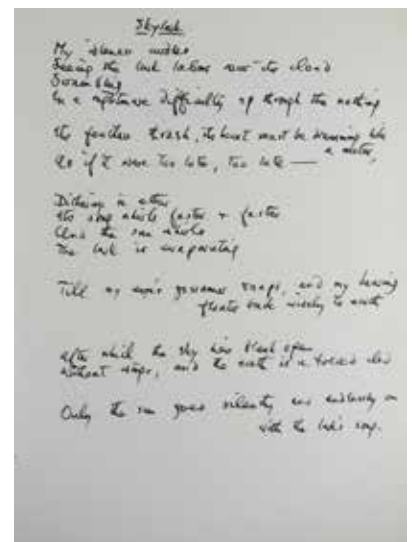 Skylark
My idleness curdles
Seeing the lark labour near its cloud
Scrambling
In a nightmare difficulty up through the nothing
Its feathers thrash, its heart must be drumming like
a motor,
As if it were too late, too late —
Dithering in ether
Its song whirls faster + faster
And the sun whirls
The lark is evaporating
Till my eye's gossamer snaps, and my hearing
floats back widely to earth
After which the sky lies blank open
Without wings, and the earth is a folded clod
Only the sun goes silently and endlessly on
with the lark's song.